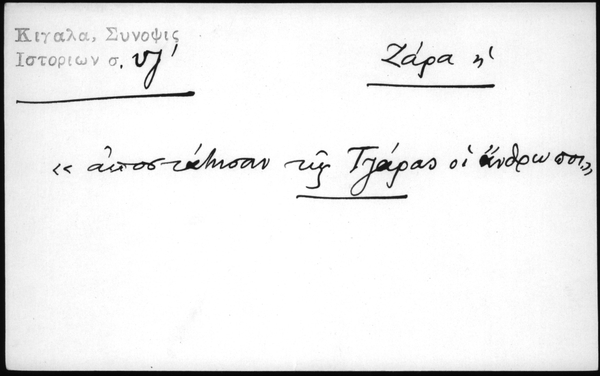 Κιγαλα, Συνοψις
Ιστοριων σ. νζ'
Ζάρα η'
« ἀποστάτησαν τῆς Τζάρας οἱ ἄνθρωποι »